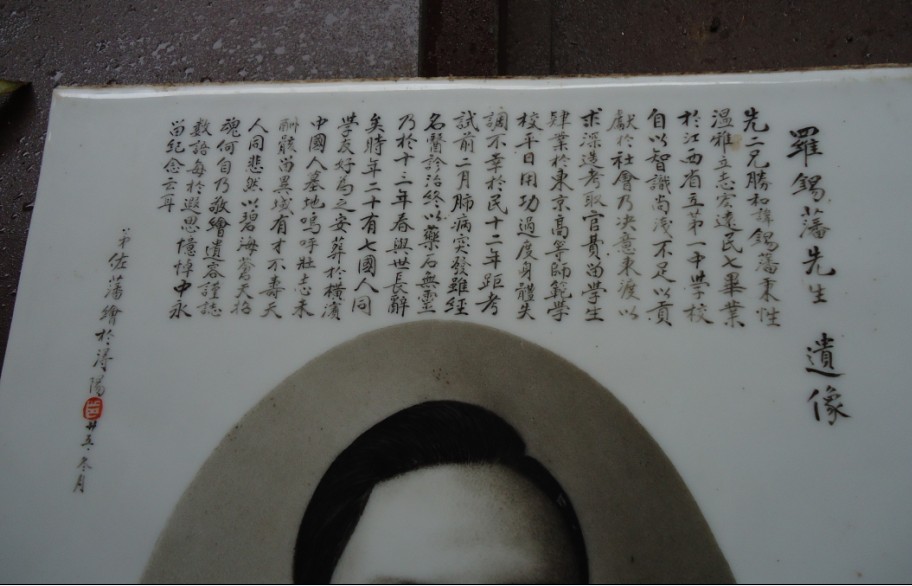 羅錫藩先生 遺像
先二兄勝和諱錫藩秉性
溫雅立志宏遠民七畢業
於江西省立第一中學校
自以智識尚淺不足以貢
獻於社會乃決意東渡以
求深造考取官費留學生
肄業於東京高等師範學
校平日用功過度身體失
調不幸於民十二年距考
試前二月肺病突發雖經
名醫診治終以藥石無靈
乃於十三年春與世長辭
矣時年二十有七國人同
學友好為之安葬於橫濱
中國人墓地嗚呼壯志未
酬骸留異域有才不壽天
人同悲然以碧海蒼天招
魂何自乃敬繪遺容謹誌
數語每於遐思憶悼中永
留紀念云耳
弟佐藩繪於潯陽
廿五 冬月